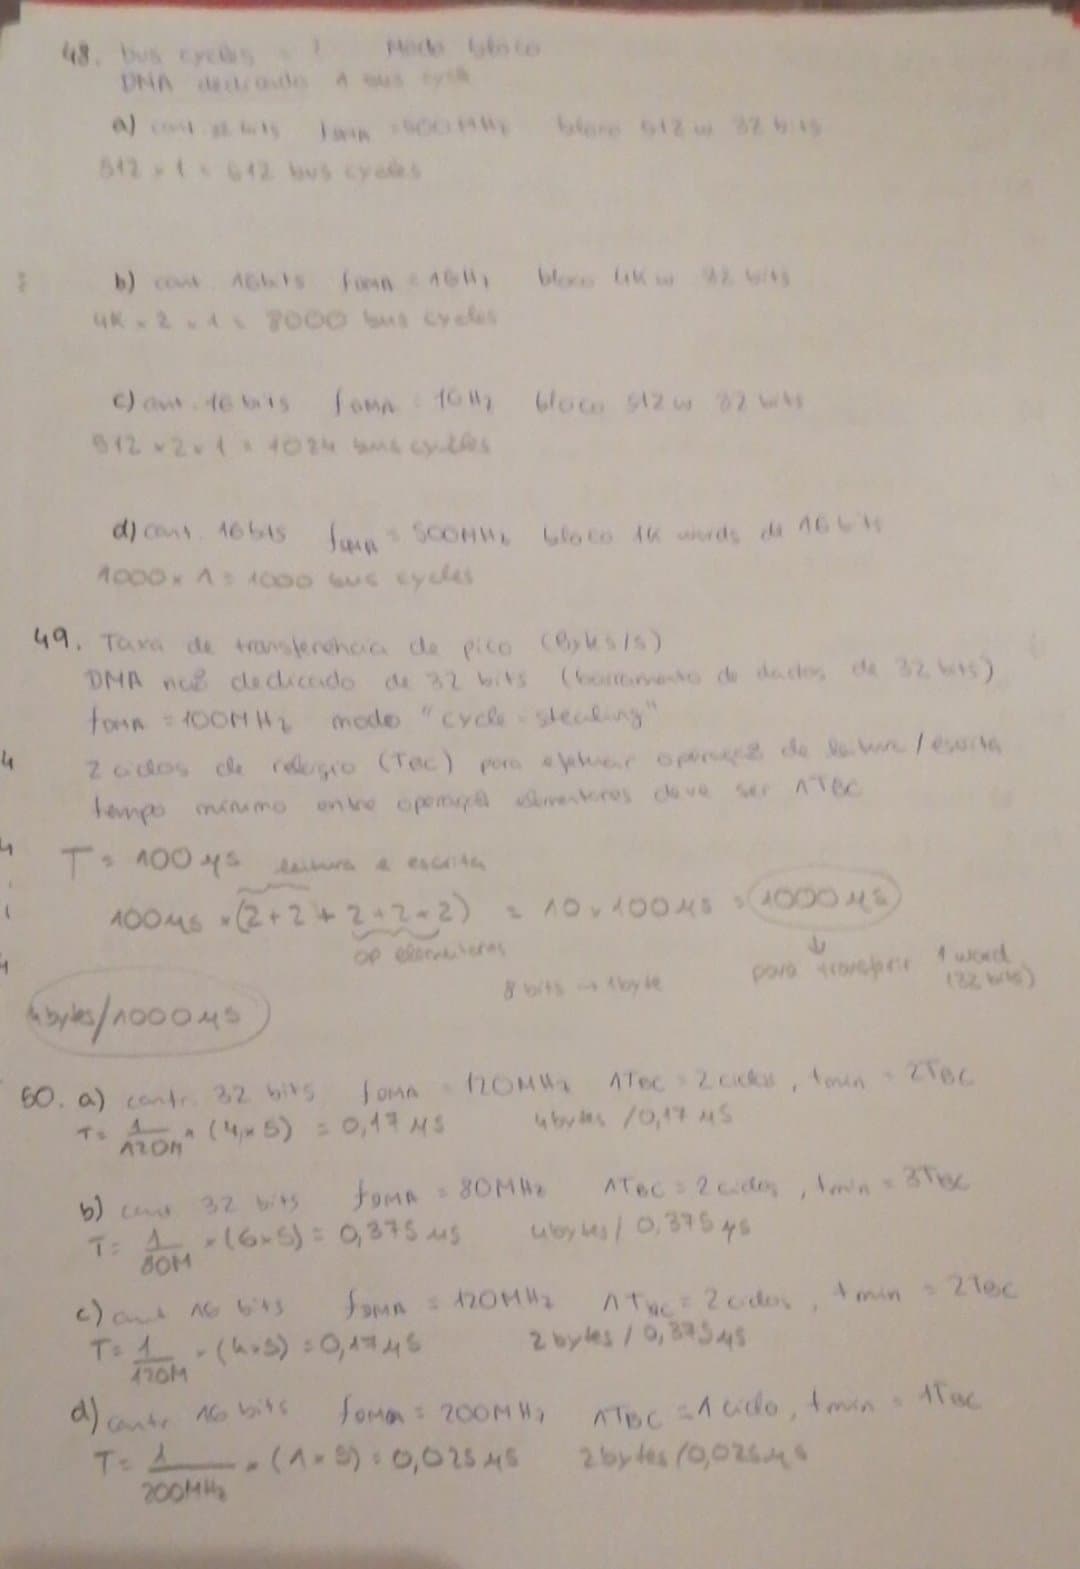 48. bus cycles = ? Modo bloco
DMA dedicado 1 bus cycle
a) cont. 32 bits fDMA = 500MHz bloco 512 w 32 bits
512 x 1 = 512 bus cycles
b) cont. 16bits fDMA = 1GHz bloco 4K w 32 bits
4K x 2 x 1 = 8000 bus cycles
c) cont. 16 bits fDMA = 1GHz bloco 512 w 32 bits
512 x 2 x 1 = 1024 bus cycles
d) cont. 16 bits fDMA = 500MHz bloco 1K words de 16 bits
1000 x 1 = 1000 bus cycles
49. Taxa de transferência de pico (Bytes/s)
DMA não dedicado de 32 bits (barramento de dados de 32 bits)
fDMA = 100MHz modo "cycle-stealing"
2 ciclos de relógio (TBC) para efetuar operação de leitura / escrita
tempo mínimo entre operações elementares deve ser 1TBC
T = 100 μs leitura e escrita
100μs x (2+2 + 2+2+2) = 10 x 100μs = 1000μs
op elementares
8 bits → 1byte
para transferir 1 word (32 bits)
4bytes/1000μs
50. a) contr. 32 bits fDMA = 120MHz 1TBC = 2 ciclos, tmin = 2TBC
T = 1/120M x (4x5) = 0,17 μs 4bytes /0,17 μs
b) cont 32 bits fDMA = 80MHz 1TBC = 2 ciclos, tmin = 3TBC
T = 1/80M x (6x5) = 0,375 μs 4bytes / 0,375 μs
c) cont 16 bits fDMA = 120MHz 1TBC = 2 ciclos, tmin = 2TBC
T = 1/120M x (4x5) = 0,17μs 2 bytes / 0,375μs
d) contr 16 bits fDMA = 200MHz 1TBC = 1 ciclo, tmin = 1TBC
T = 1/200MHz x (1x5) = 0,025 μs 2bytes /0,025μs